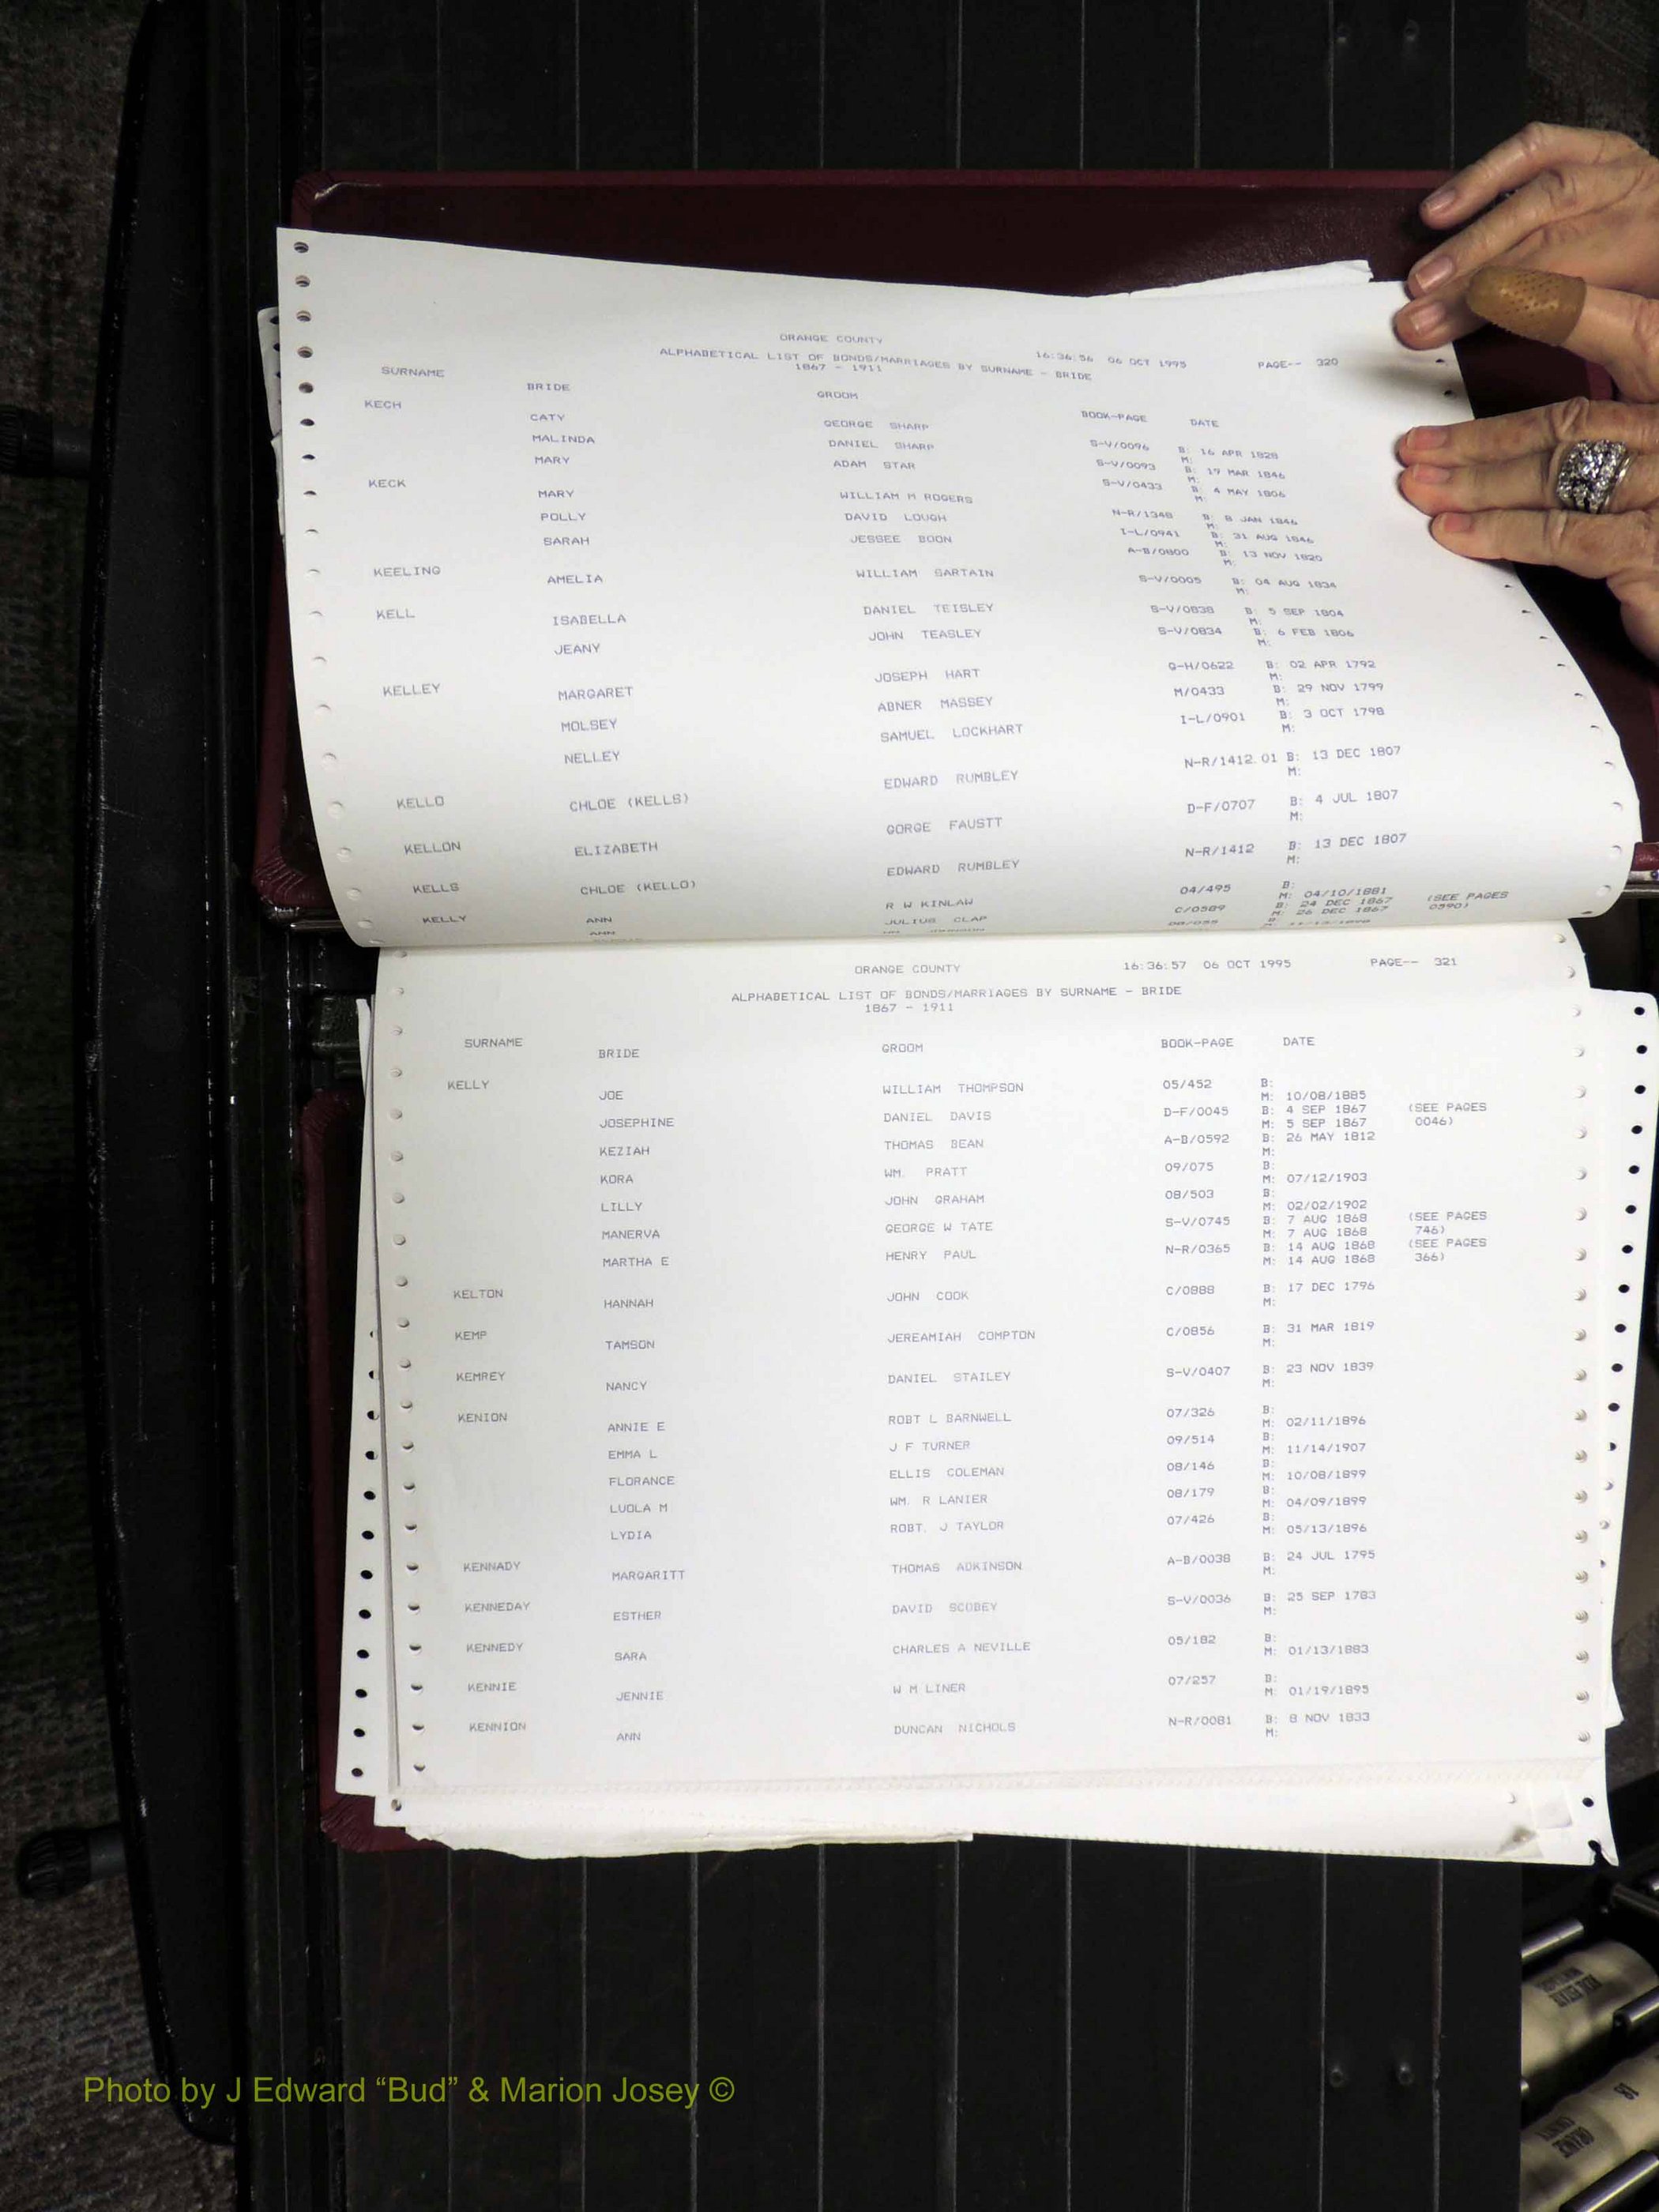 ORANGE COUNTY 16:36:56 06 OCT 1995 PAGE-- 320
ALPHABETICAL LIST OF BONDS/MARRIAGES BY SURNAME - BRIDE
1867 - 1911
SURNAME BRIDE GROOM BOOK-PAGE DATE
KECH
CATY GEORGE SHARP S-V/0096 B: 16 APR 1828
M:
MALINDA DANIEL SHARP S-V/0093 B: 19 MAR 1846
M:
MARY ADAM STAR S-V/0433 B: 4 MAY 1806
M:
KECK
MARY WILLIAM M ROGERS N-R/1348 B: 8 JAN 1846
M:
POLLY DAVID LOUGH I-L/0941 B: 31 AUG 1846
M:
SARAH JESSEE BOON A-B/0800 B: 13 NOV 1820
M:
KEELING AMELIA WILLIAM SARTAIN S-V/0005 B: 04 AUG 1834
M:
KELL ISABELLA DANIEL TEISLEY S-V/0838 B: 5 SEP 1804
M:
JEANY JOHN TEASLEY S-V/0834 B: 6 FEB 1806
M:
KELLEY MARGARET JOSEPH HART G-H/0622 B: 02 APR 1792
M:
MOLSEY ABNER MASSEY M/0433 B: 29 NOV 1799
M:
NELLEY SAMUEL LOCKHART I-L/0901 B: 3 OCT 1798
M:
KELLO CHLOE (KELLS) EDWARD RUMBLEY N-R/1412.01 B: 13 DEC 1807
M:
KELLON ELIZABETH GORGE FAUSTT D-F/0707 B: 4 JUL 1807
M:
KELLS CHLOE (KELLO) EDWARD RUMBLEY N-R/1412 B: 13 DEC 1807
M:
KELLY ANN R W KINLAW 04/495 B:
M: 04/10/1881
ANN JULIUS CLAP C/0589 B: 24 DEC 1867 (SEE PAGES
M: 26 DEC 1867 0590)
ORANGE COUNTY 16:36:57 06 OCT 1995 PAGE-- 321
ALPHABETICAL LIST OF BONDS/MARRIAGES BY SURNAME - BRIDE
1867 - 1911
SURNAME BRIDE GROOM BOOK-PAGE DATE
KELLY
JOE WILLIAM THOMPSON 05/452 B:
M: 10/08/1885
JOSEPHINE DANIEL DAVIS D-F/0045 B: 4 SEP 1867 (SEE PAGES
M: 5 SEP 1867 0046)
KEZIAH THOMAS BEAN A-B/0592 B: 26 MAY 1812
M:
KORA WM. PRATT 09/075 B:
M: 07/12/1903
LILLY JOHN GRAHAM 08/503 B:
M: 02/02/1902
MANERVA GEORGE W TATE S-V/0745 B: 7 AUG 1868 (SEE PAGES
M: 7 AUG 1868 746)
MARTHA E HENRY PAUL N-R/0365 B: 14 AUG 1868 (SEE PAGES
M: 14 AUG 1868 366)
KELTON HANNAH JOHN COOK C/0888 B: 17 DEC 1796
M:
KEMP TAMSON JEREAMIAH COMPTON C/0856 B: 31 MAR 1819
M:
KEMREY NANCY DANIEL STAILEY S-V/0407 B: 23 NOV 1839
M:
KENION ANNIE E ROBT L BARNWELL 07/326 B:
M: 02/11/1896
EMMA L J F TURNER 09/514 B:
M: 11/14/1907
FLORANCE ELLIS COLEMAN 08/146 B:
M: 10/08/1899
LUOLA M WM. R LANIER 08/179 B:
M: 04/09/1899
LYDIA ROBT. J TAYLOR 07/426 B:
M: 05/13/1896
KENNADY MARGARITT THOMAS ADKINSON A-B/0038 B: 24 JUL 1795
M:
KENNEDAY ESTHER DAVID SCOBEY S-V/0036 B: 25 SEP 1783
M:
KENNEDY SARA CHARLES A NEVILLE 05/182 B:
M: 01/13/1883
KENNIE JENNIE W M LINER 07/257 B:
M: 01/19/1895
KENNION ANN DUNCAN NICHOLS N-R/0081 B: 8 NOV 1833
M:
Photo by J Edward “Bud” & Marion Josey ©